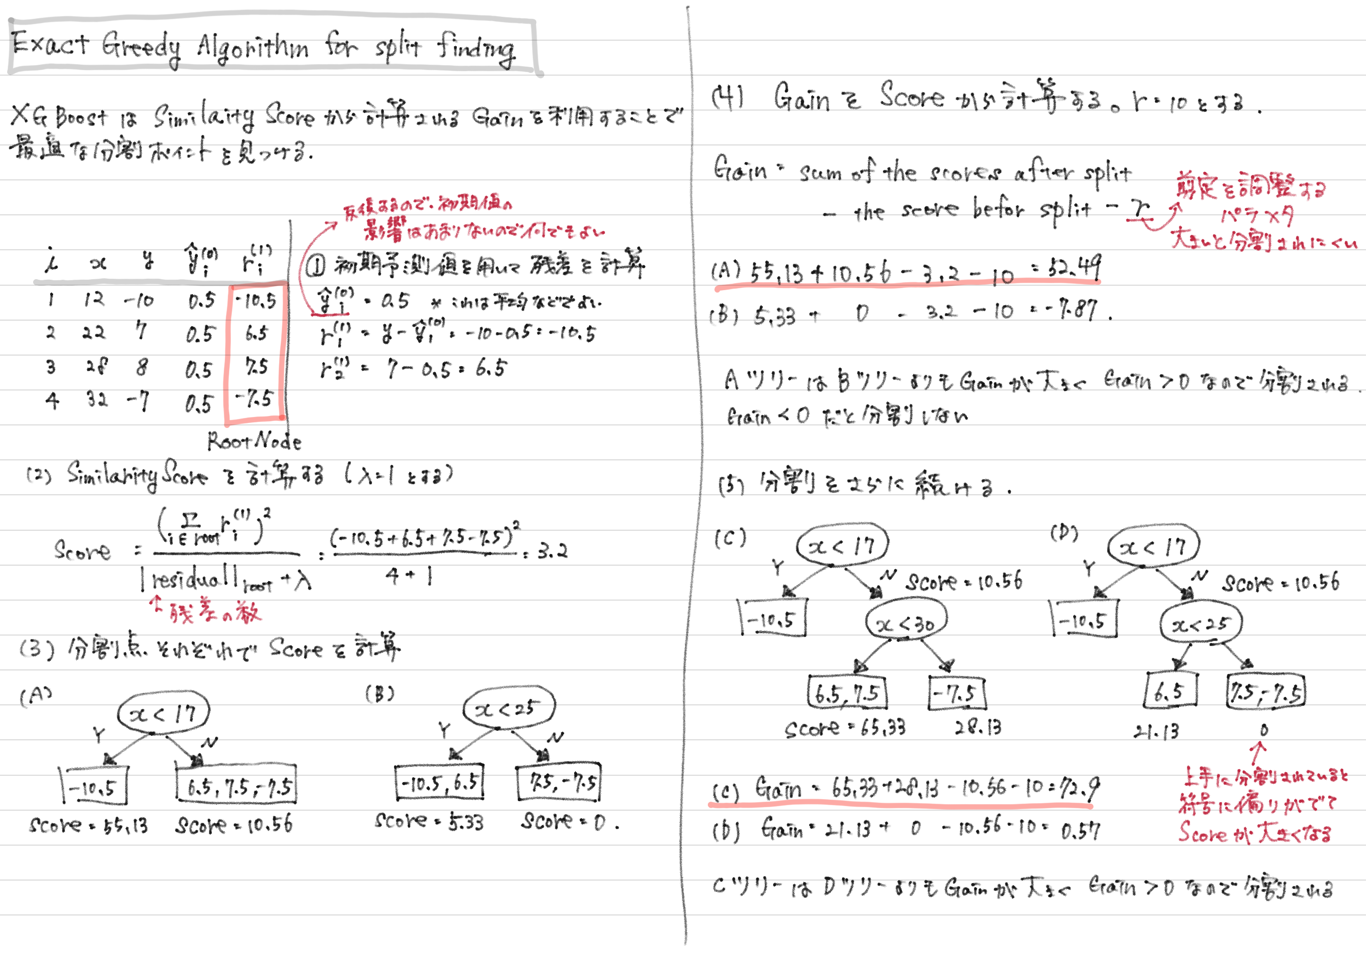 Exact Greedy Algorithm for split finding
XGBoost は Similaity Score から計算される Gain を利用することで
最適な分割ポイントを見つける.
反復するので、初期値の
影響はあまりないので何でもよい
i x y ŷi(0) ri(1)
1 12 -10 0.5 -10.5
2 22 7 0.5 6.5
3 28 8 0.5 7.5
4 32 -7 0.5 -7.5
RootNode
① 初期予測値を用いて残差を計算
ŷi(0) = 0.5 * これは平均などでよい
r1(1) = y - ŷ1(0) = -10 - 0.5 = -10.5
r2(1) = 7 - 0.5 = 6.5
(2) SimilarityScore を計算する (λ=1 とする)
Score = (Σ i∈root ri(1))² / |residual|root + λ = (-10.5+6.5+7.5-7.5)² / 4+1 = 3.2
↑ 残差の数
(3) 分割点それぞれで Score を計算
(A)
x < 17
Y N
-10.5 6.5, 7.5, -7.5
Score = 55,13 Score = 10.56
(B)
x < 25
Y N
-10.5, 6.5 7.5, -7.5
Score = 5.33 Score = 0.
(4) Gain を Score から計算する。r = 10 とする.
Gain = sum of the scores after split
- the score befor split - r
剪定を調整する
パラメタ
大きいと分割されにくい
(A) 55,13 + 10.56 - 3,2 - 10 = 52.49
(B) 5,33 + 0 - 3.2 - 10 = -7.87.
Aツリーは Bツリーよりも Gain が大きく Gain > 0 なので分割される.
Gain < 0 だと分割しない
(5) 分割をさらに続ける.
(C)
x < 17
Y N Score = 10.56
-10.5 x < 30
6.5, 7.5 -7.5
Score = 65,33 28.13
(D)
x < 17
Y N Score = 10.56
-10.5 x < 25
6.5 7.5, -7.5
21.13 0
上手に分割されていると
符号に偏りがでて
Score が大きくなる
(C) Gain = 65,33 + 28,13 - 10.56 - 10 = 72.9
(D) Gain = 21.13 + 0 - 10.56 - 10 = 0.57
Cツリーは Dツリーよりも Gain が大きく Gain > 0 なので分割される